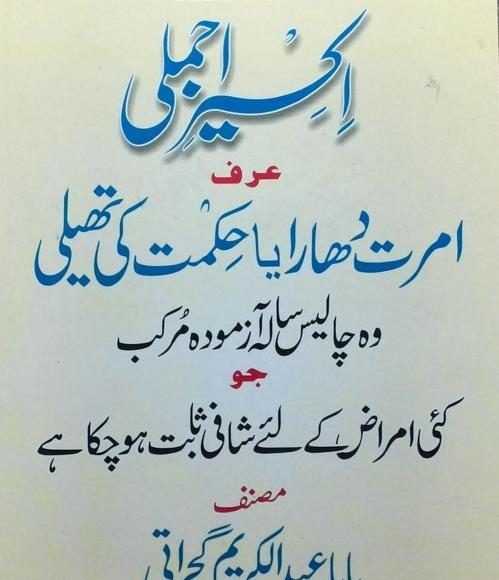 اکسیر اجملی
عرف
امرت دھارا یا حکمت کی تھیلی
وہ چالیس سالہ آزمودہ مُرکب
جو
کئی امراض کے لئے شافی ثابت ہو چکا ہے
مصنف
بابا عبدالکریم گجراتی